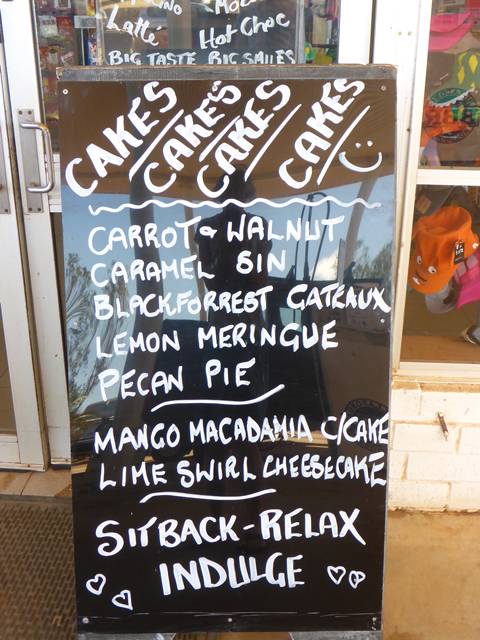 Latté
Hot Choc
BIG TASTE BIG SMILES
CAKES/CAKE'S/CAKES/CAKES/
CARROT & WALNUT
CARAMEL SIN
BLACKFORREST GATEAUX
LEMON MERINGUE
PECAN PIE
MANGO MACADAMIA C/CAKE
LIME SWIRL CHEESECAKE
SITBACK-RELAX
INDULGE